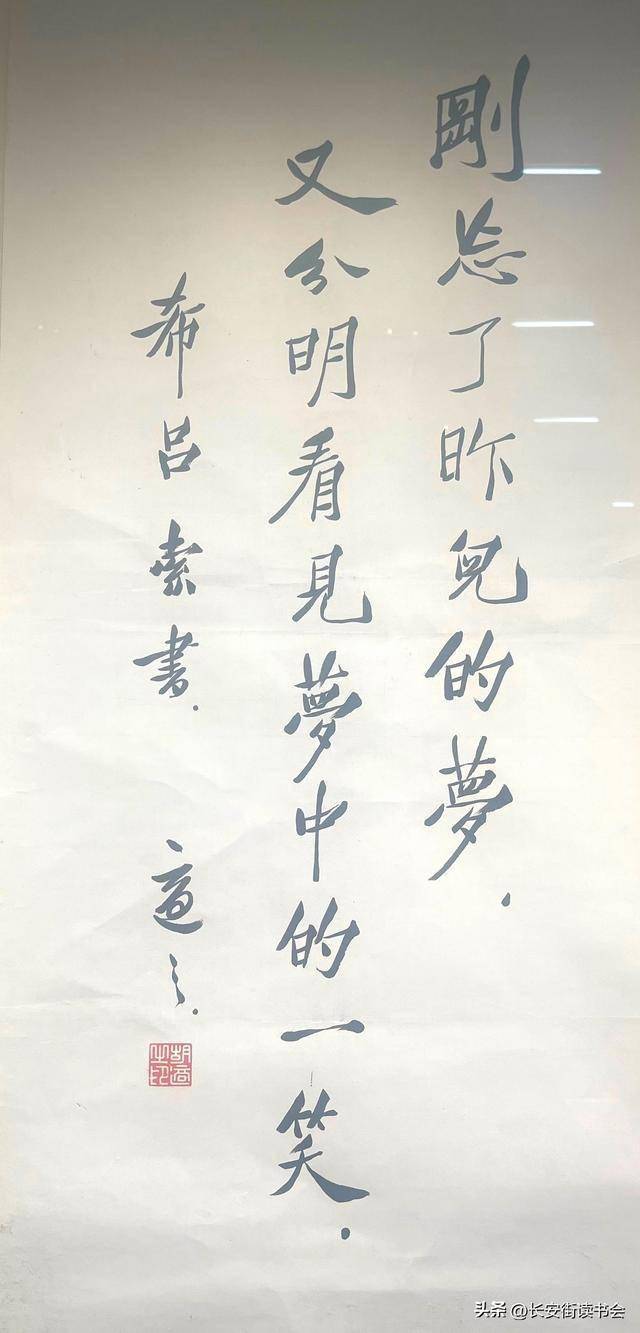 剛忘了昨兒的夢.
又分明看見夢中的一笑.
希呂索書.
適之.
胡適之印
头条 @长安街读书会